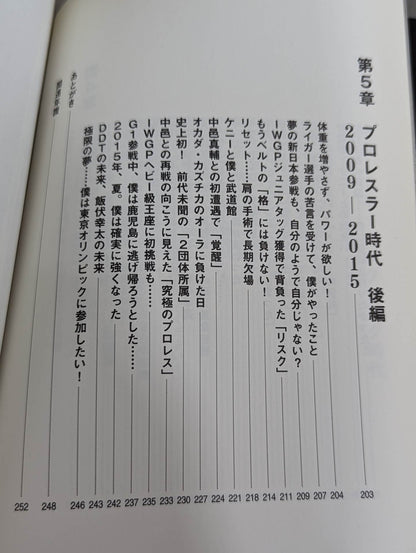 第5章 プロレスラー時代 後編
2009―2015
203
体重を増やさず、パワーが欲しい! 204
ライガー選手の苦言を受けて、僕がやったこと 207
夢の新日本参戦も、自分のようで自分じゃない? 209
IWGPジュニアタッグ獲得で背負った「リスク」 211
もうベルトの「格」には負けない! 214
リセット……肩の手術で長期欠場 218
ケニーと僕と武道館 221
中邑真輔との初遭遇で「覚醒」 224
オカダ・カズチカのオーラに負けた日 227
史上初! 前代未聞の「2団体所属」 230
中邑との再戦の向こうに見えた「究極のプロレス」 233
IWGPヘビー級王座に初挑戦も…… 235
G1参戦中、僕は鹿児島に逃げ帰ろうとした…… 237
2015年、夏。僕は確実に強くなった 242
DDTの未来、飯伏幸太の未来 243
極限の夢……僕は東京オリンピックに参加したい! 246
あとがき 248
252